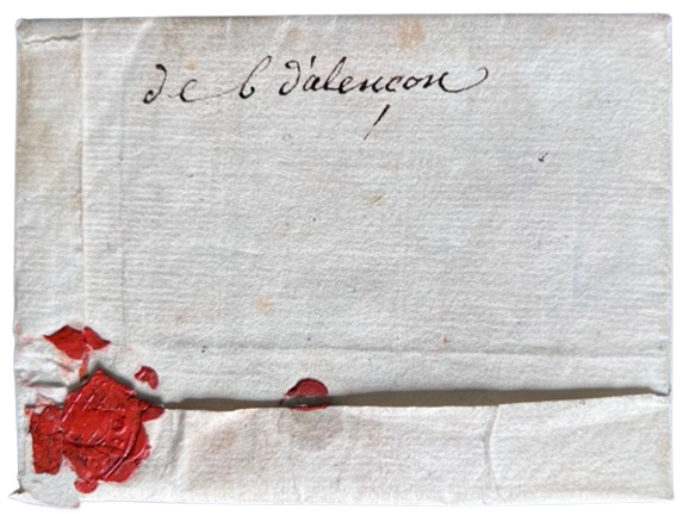 de b d'alençon